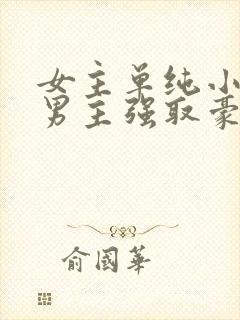 女主单纯小
男主强取豪
俞國華